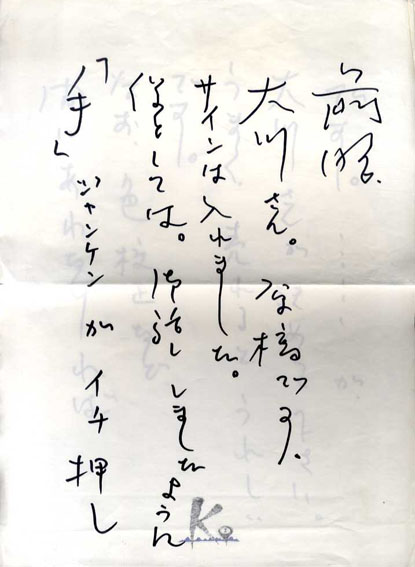 前略.
大川さん。原稿です、
サインは入れました。
僕としては。御話ししましたように
「手」ジャンケンがイチ押し
K.